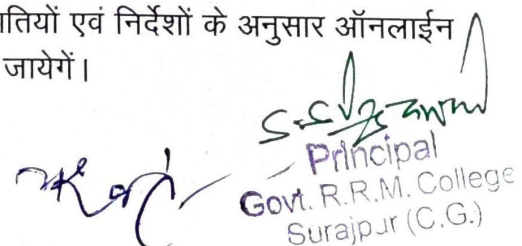 तियों एवं निर्देशों के अनुसार ऑनलाईन
जायेगें।
Principal
Govt. R.R.M. College
Surajpur (C.G.)